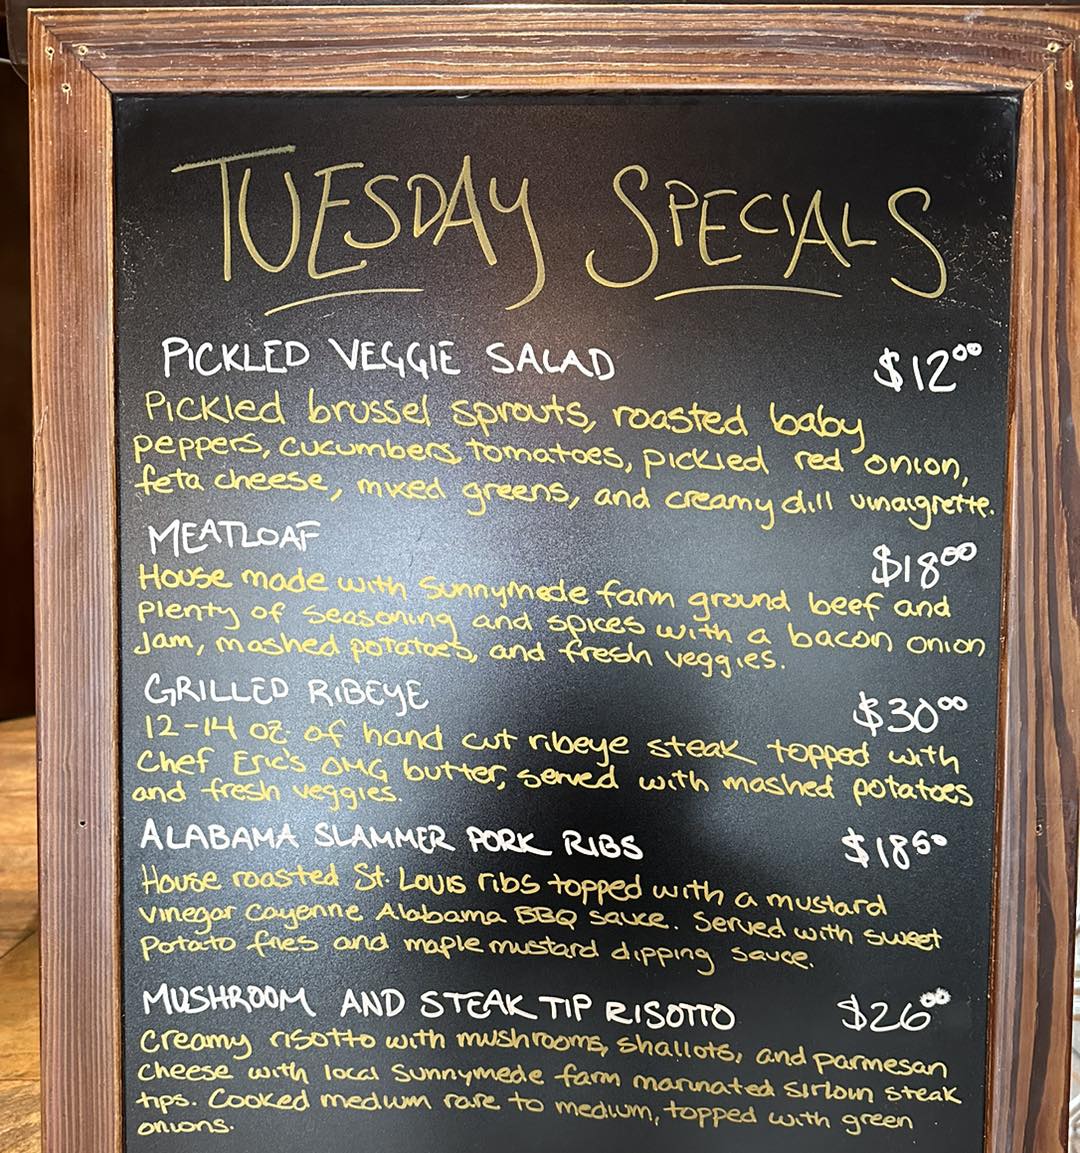 TUESDAY SPECIALS
PICKLED VEGGIE SALAD $12⁰⁰
Pickled brussel sprouts, roasted baby
peppers, cucumbers, tomatoes, pickled red onion,
feta cheese, mixed greens, and creamy dill vinaigrette.
MEATLOAF $18⁰⁰
House made with Sunnymede farm ground beef and
plenty of seasoning and spices with a bacon onion
Jam, mashed potatoes, and fresh veggies.
GRILLED RIBEYE $30⁰⁰
12-14 oz of hand cut ribeye steak topped with
Chef Eric's OMG butter, served with mashed potatoes
and fresh veggies.
ALABAMA SLAMMER PORK RIBS $18⁵⁰
House roasted St. Louis ribs topped with a mustard
vinegar Cayenne Alabama BBQ sauce. Served with sweet
potato fries and maple mustard dipping sauce.
MUSHROOM AND STEAK TIP RISOTTO $26⁰⁰
Creamy risotto with mushrooms, shallots, and parmesan
cheese with local Sunnymede farm marinated sirloin steak
tips. Cooked medium rare to medium, topped with green
onions.